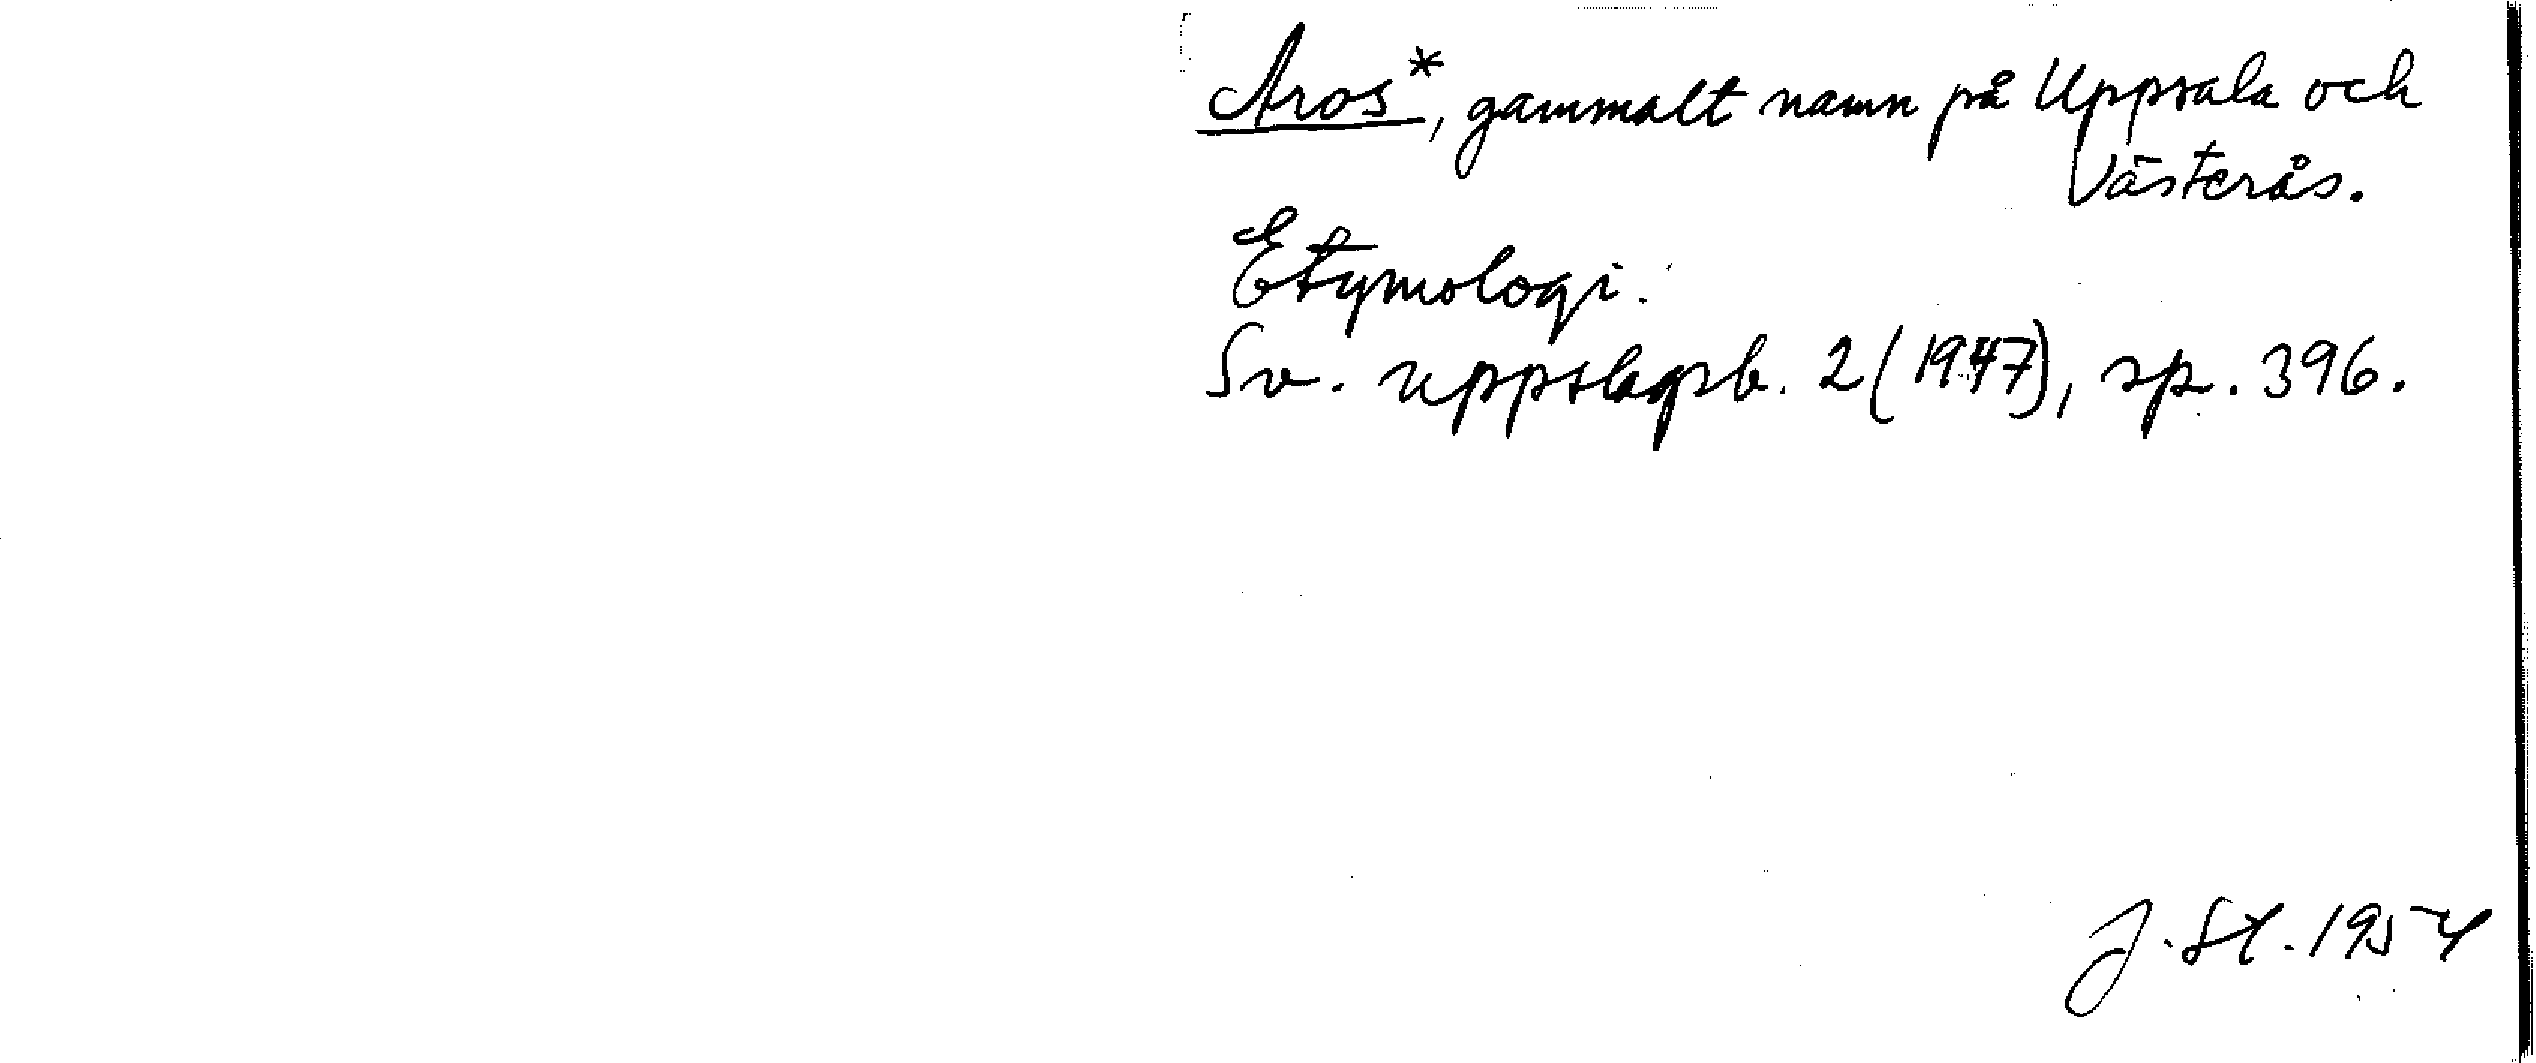 Aros*, gammalt namn på Uppsala och
Västerås.
Etymologi:
Sv. uppslagsb. 2 (1947), sp. 396.
J. St. 1954